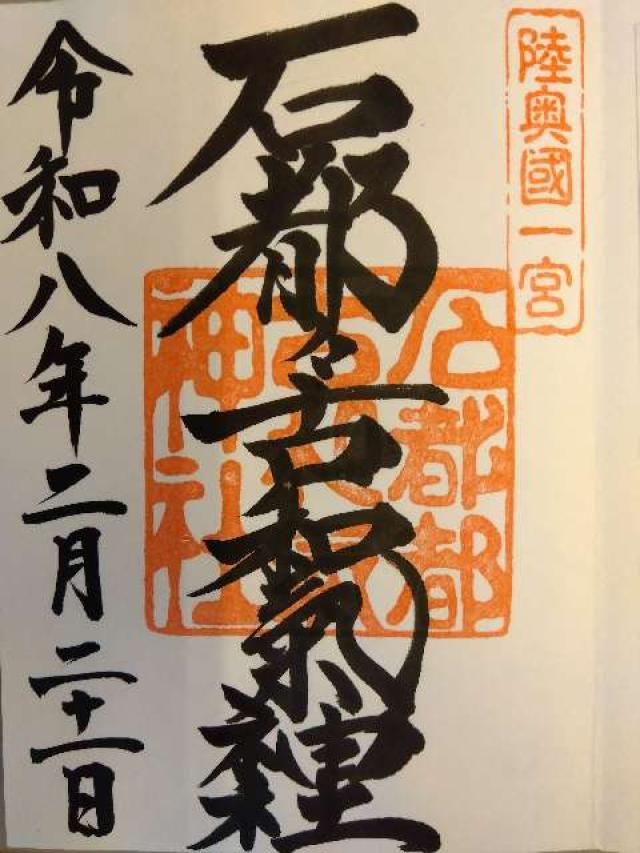 陸奥國一宮
石都々古和氣
石都都
古
神社
令和八年二月二十一日